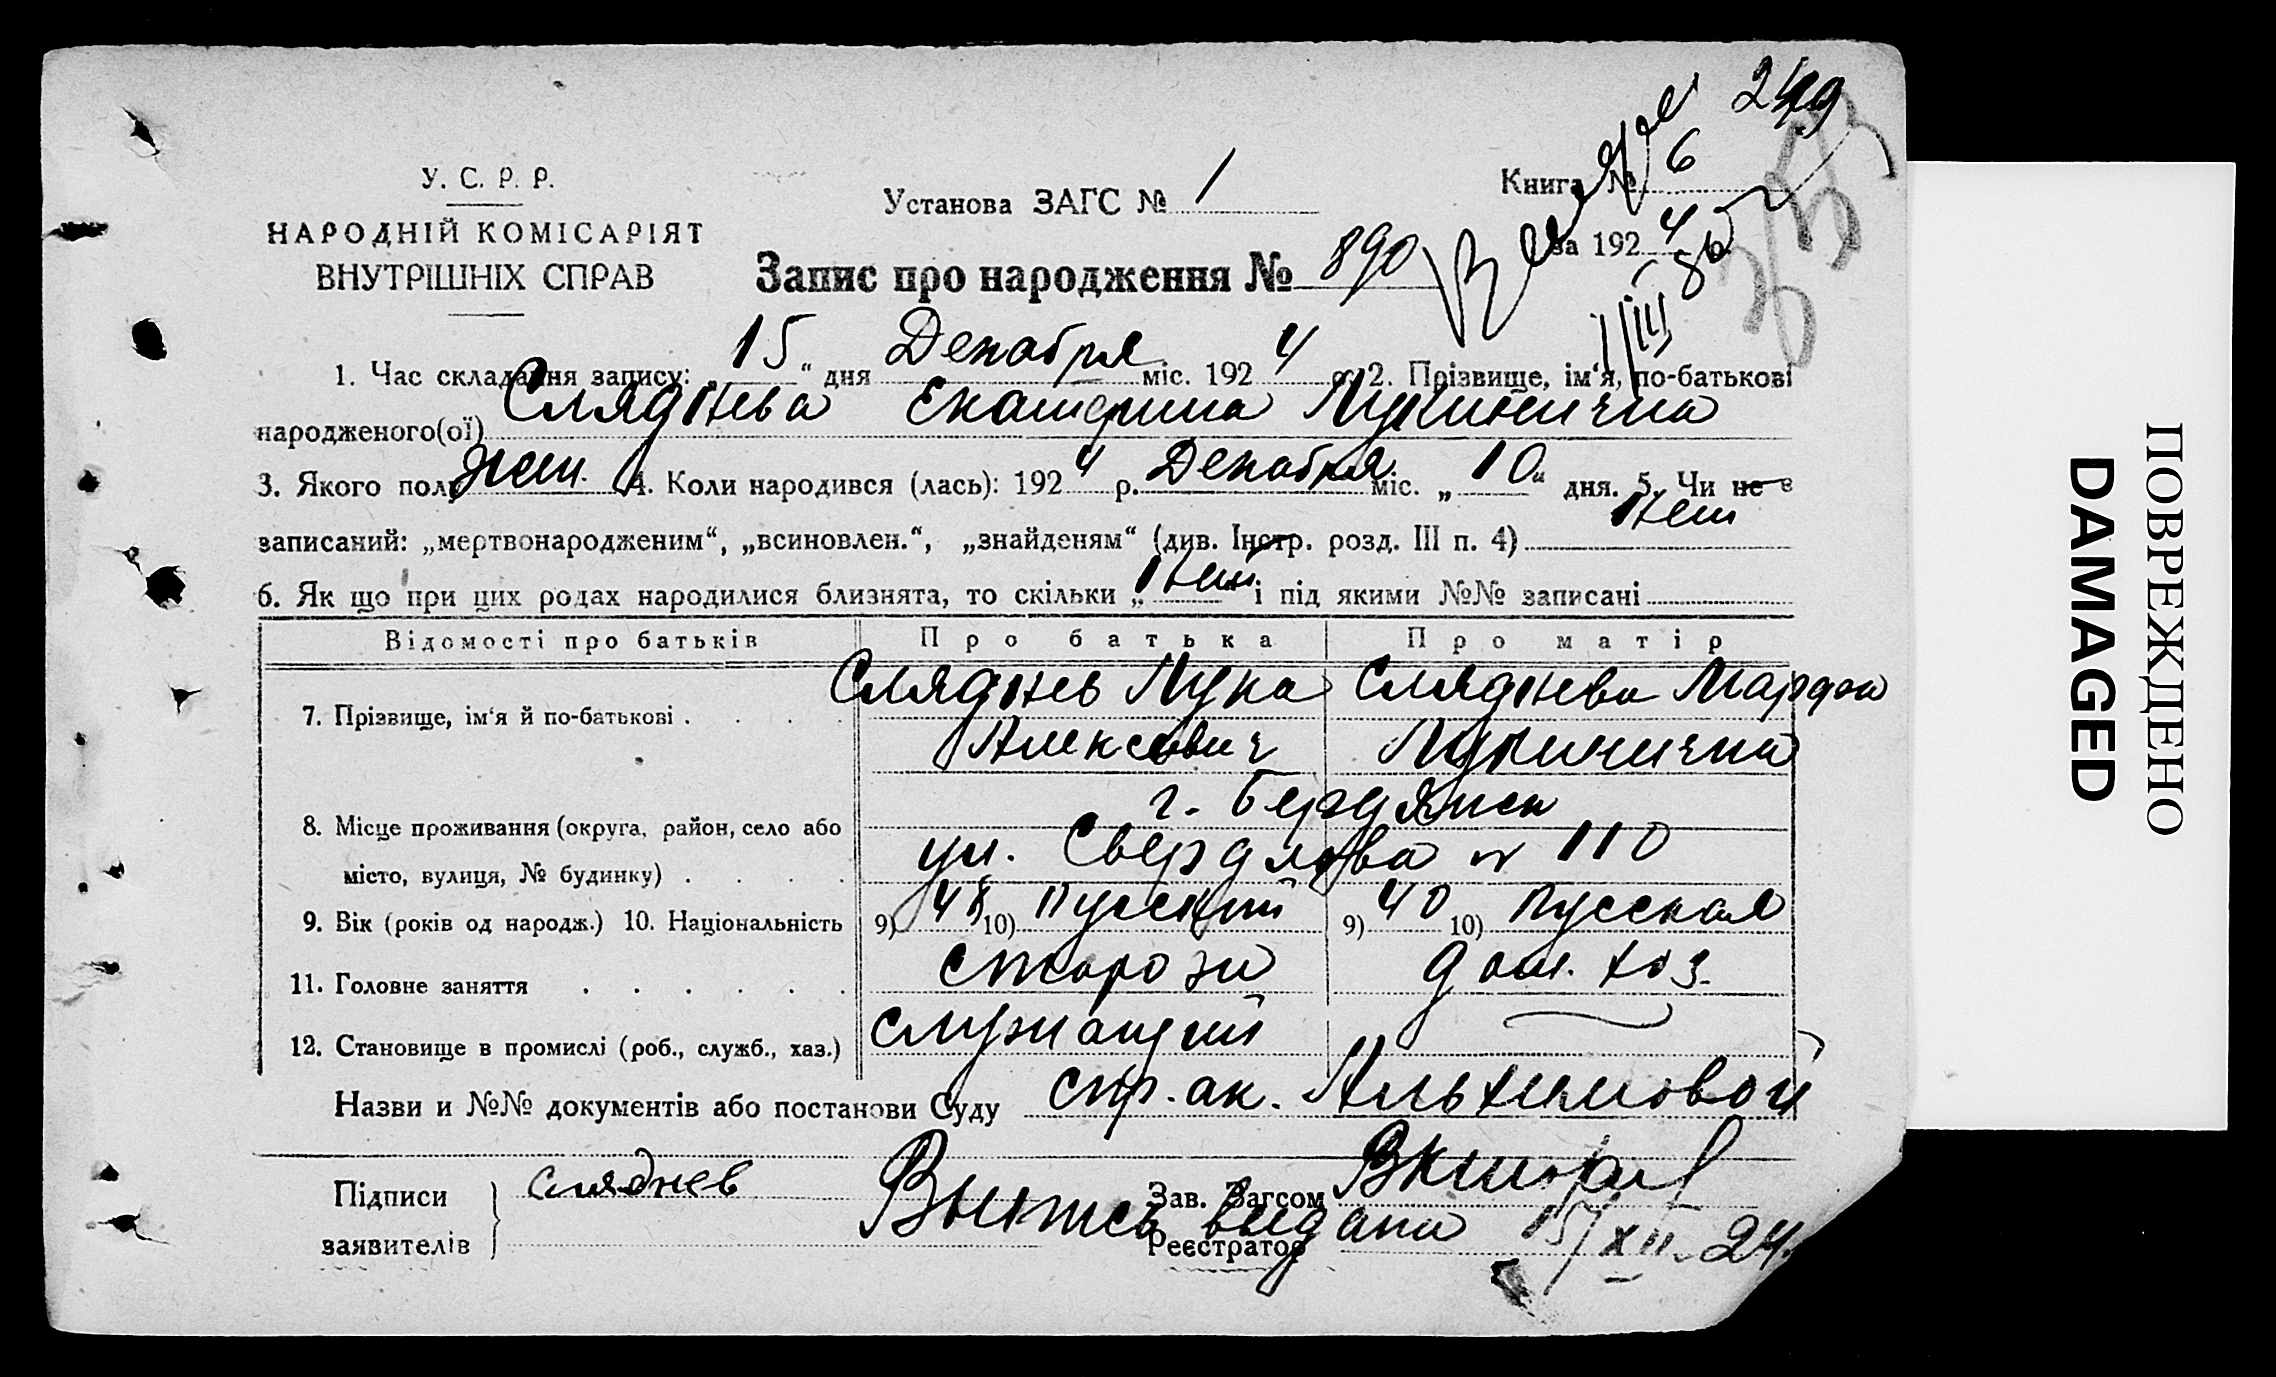 249
У. С. Р. Р.
НАРОДНІЙ КОМІСАРІЯТ
ВНУТРІШНІХ СПРАВ
Установа ЗАГС № 1
Книга № 6
за 1924 р.
Запис про народження № 890
1. Час складання запису: „15“ дня Декабря міс. 1924 р. 2. Прізвище, ім‘я, по-батькові
народженого(ої) Сляднева Екатерина Лукинична
3. Якого полу жен. 4. Коли народився (лась): 1924 р. Декабря міс. „10“ дня. 5. Чи не є
записаний: „мертвонародженим“, „всиновлен.“, „знайденям“ (див. Інстр. розд. III п. 4) нет
6. Як що при цих родах народилися близнята, то скільки „нет“ і під якими №№ записані
Відомості про батьків Про батька Про матір
7. Прізвище, ім‘я й по-батькові . . . . Сляднев Лука Сляднева Марфа
Алексеевич Лукинична
г. Бердянск
8. Місце проживання (округа, район, село або
місто, вулиця, № будинку) . . . . ул. Свердлова № 110
9. Вік (років од народж.) 10. Національність 9) 48 10) Русский 9) 40 10) Русская
11. Головне заняття . . . . . . сторож дом. хоз.
12. Становище в промислі (роб., служб., хаз.) служащий
Назви и №№ документів або постанови Суду спр. ак.
Підписи заявителів Сляднев
Зав. Загсом
Реєстратор
Выпись выдана 15/XII-24.
ПОВРЕЖДЕНО
DAMAGED